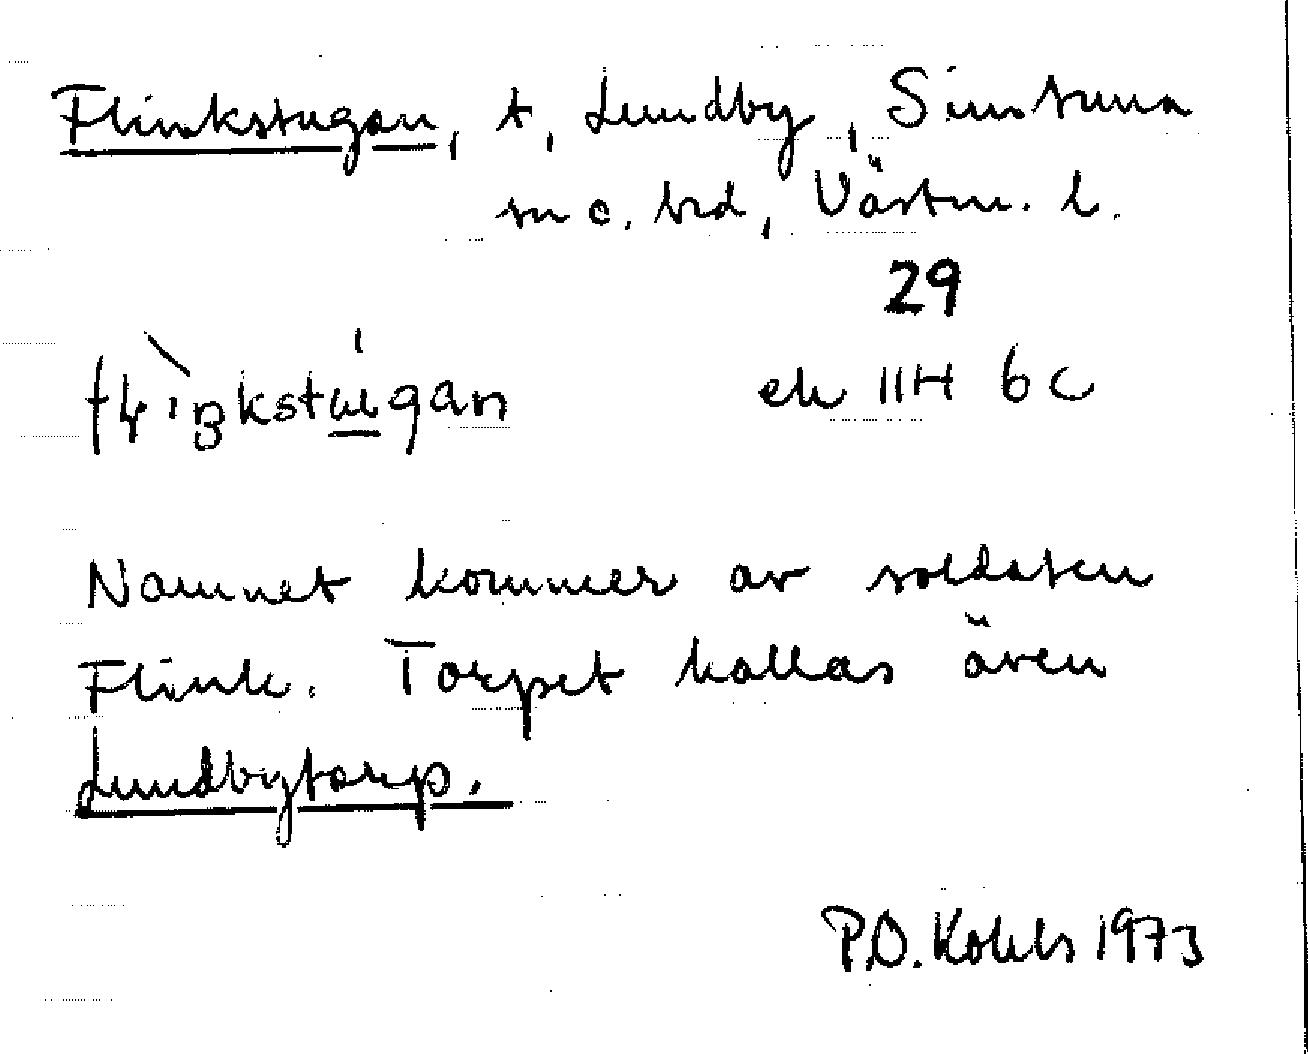 Flinkstugan, t, Lundby, Simtuna
sn o. hd, Västm. l.
29
ek 11H 6c
Namnet kommer av soldaten
Flink. Torpet kallas även
Lundbytorp.
1973